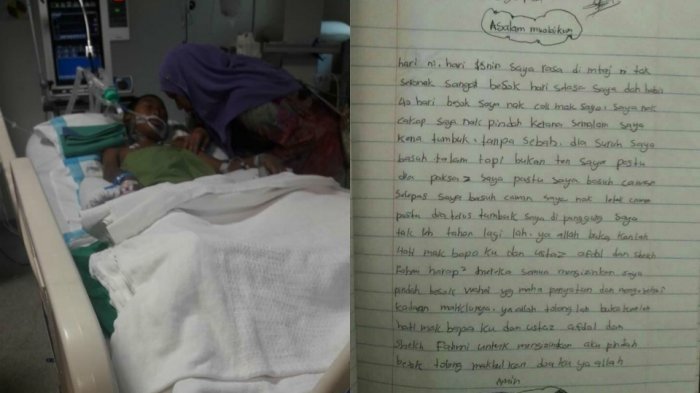 Asalam mualaikum
hari ni, hari isnin saya rasa di mtaj ni tak
seronok sangat besok hari selasa saya dah habis
40 hari besok saya nak call mak saya. Saya nak
cakap saya nak pindah kerana semalam saya
kena tumbuk, tanpa sebab. dia suruh saya
basuh talam tapi bukan ten saya pastu
dia paksa2 saya pastu saya basuh cawan
selepas saya basuh cawan saya nak letak cawan
pastu dia terus tumbuk saya di punggung saya
tak leh tahan lagi lah, ya allah buka kanlah
Hati mak bapa ku dan ustaz afdal dan sheikh
Fahmi harap2 mereka semua mengizinkan saya
pindah besok wahai yg maha penyayang dan
kataan makhlunya. ya allah tolong lah bukakanlah
hati mak bapa ku dan ustaz afdal dan
Sheikh Fahmi untuk mengizinkan aku pindah
besok tolong makbulkan doa ku ya allah
Amin